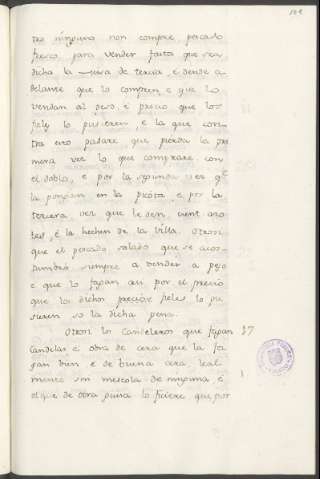 tro ninguno non compre pescado
fresco para vender fasta que sea
dicha la misa de tercia, e dende a
delante que lo compren e que lo
vendan al peso, e precio que los
fieles lo pusieren, e la que con
tra esto pasare que pierda la pri
mera vez lo que comprare con
el doblo, e por la segunda vez qe
la pongan en la picota, e por la
tercera vez que le den cient azo
tes, e la hechen de la Villa. Otrosi
que el pescado salado que se acos
tumbró siempre a vender a peso
e que lo fagan asi por el precio
que los dichos fieles lo pu
sieren so la dicha pena.
Otrosi los Candeleros que fagan 37
Candelas e obra de cera que la fa
gan bien e de buena cera leal
mente sin mescola de ninguna, e
el que de otra guisa lo ficiere que por